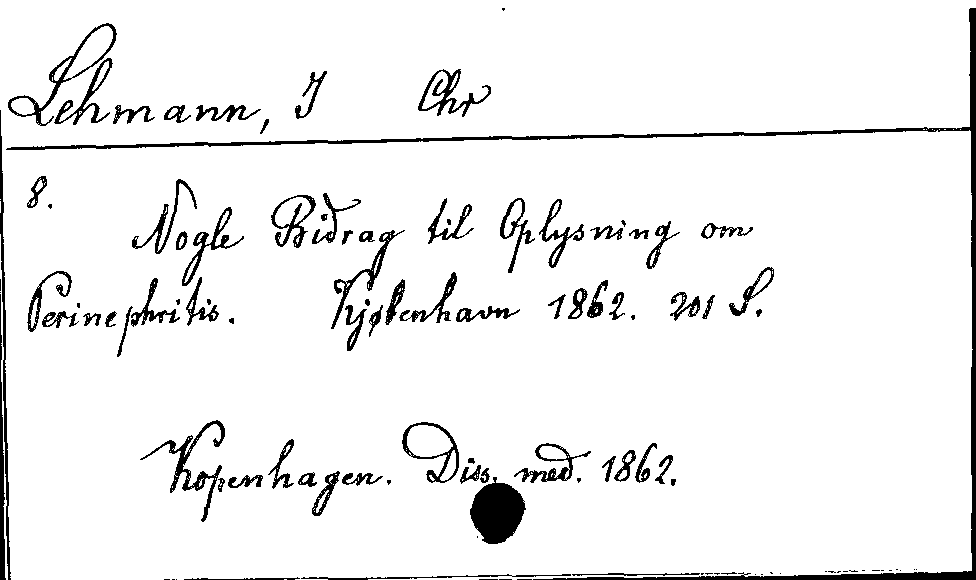 Lehmann, J Chr
8.
Nogle Bidrag til Oplysning om
Perinephritis. Kjøbenhavn 1862. 201 S.
Kopenhagen. Diss. med. 1862.